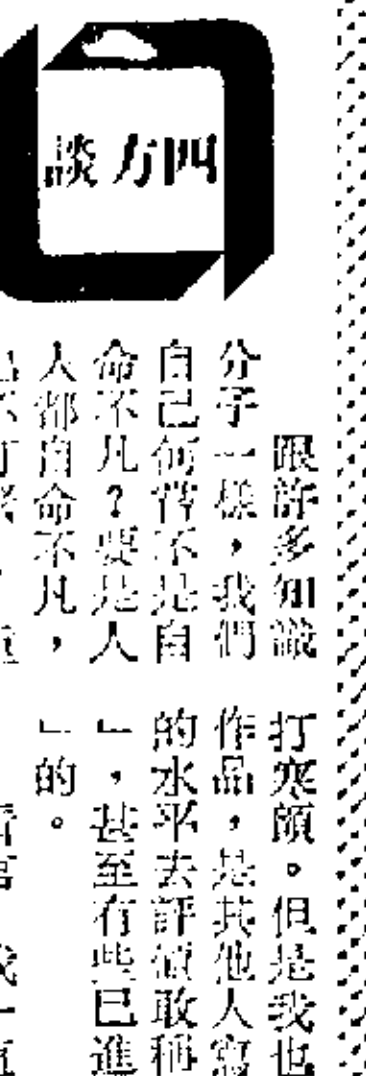 四方談
跟許多知識
分子一樣，我們
自己何嘗不是自
命不凡？要是人
人都自命不凡，
打寒顫。但是我也
作品，是其他人寫
的水平去評價敢稱
」，甚至有些已進
」的。